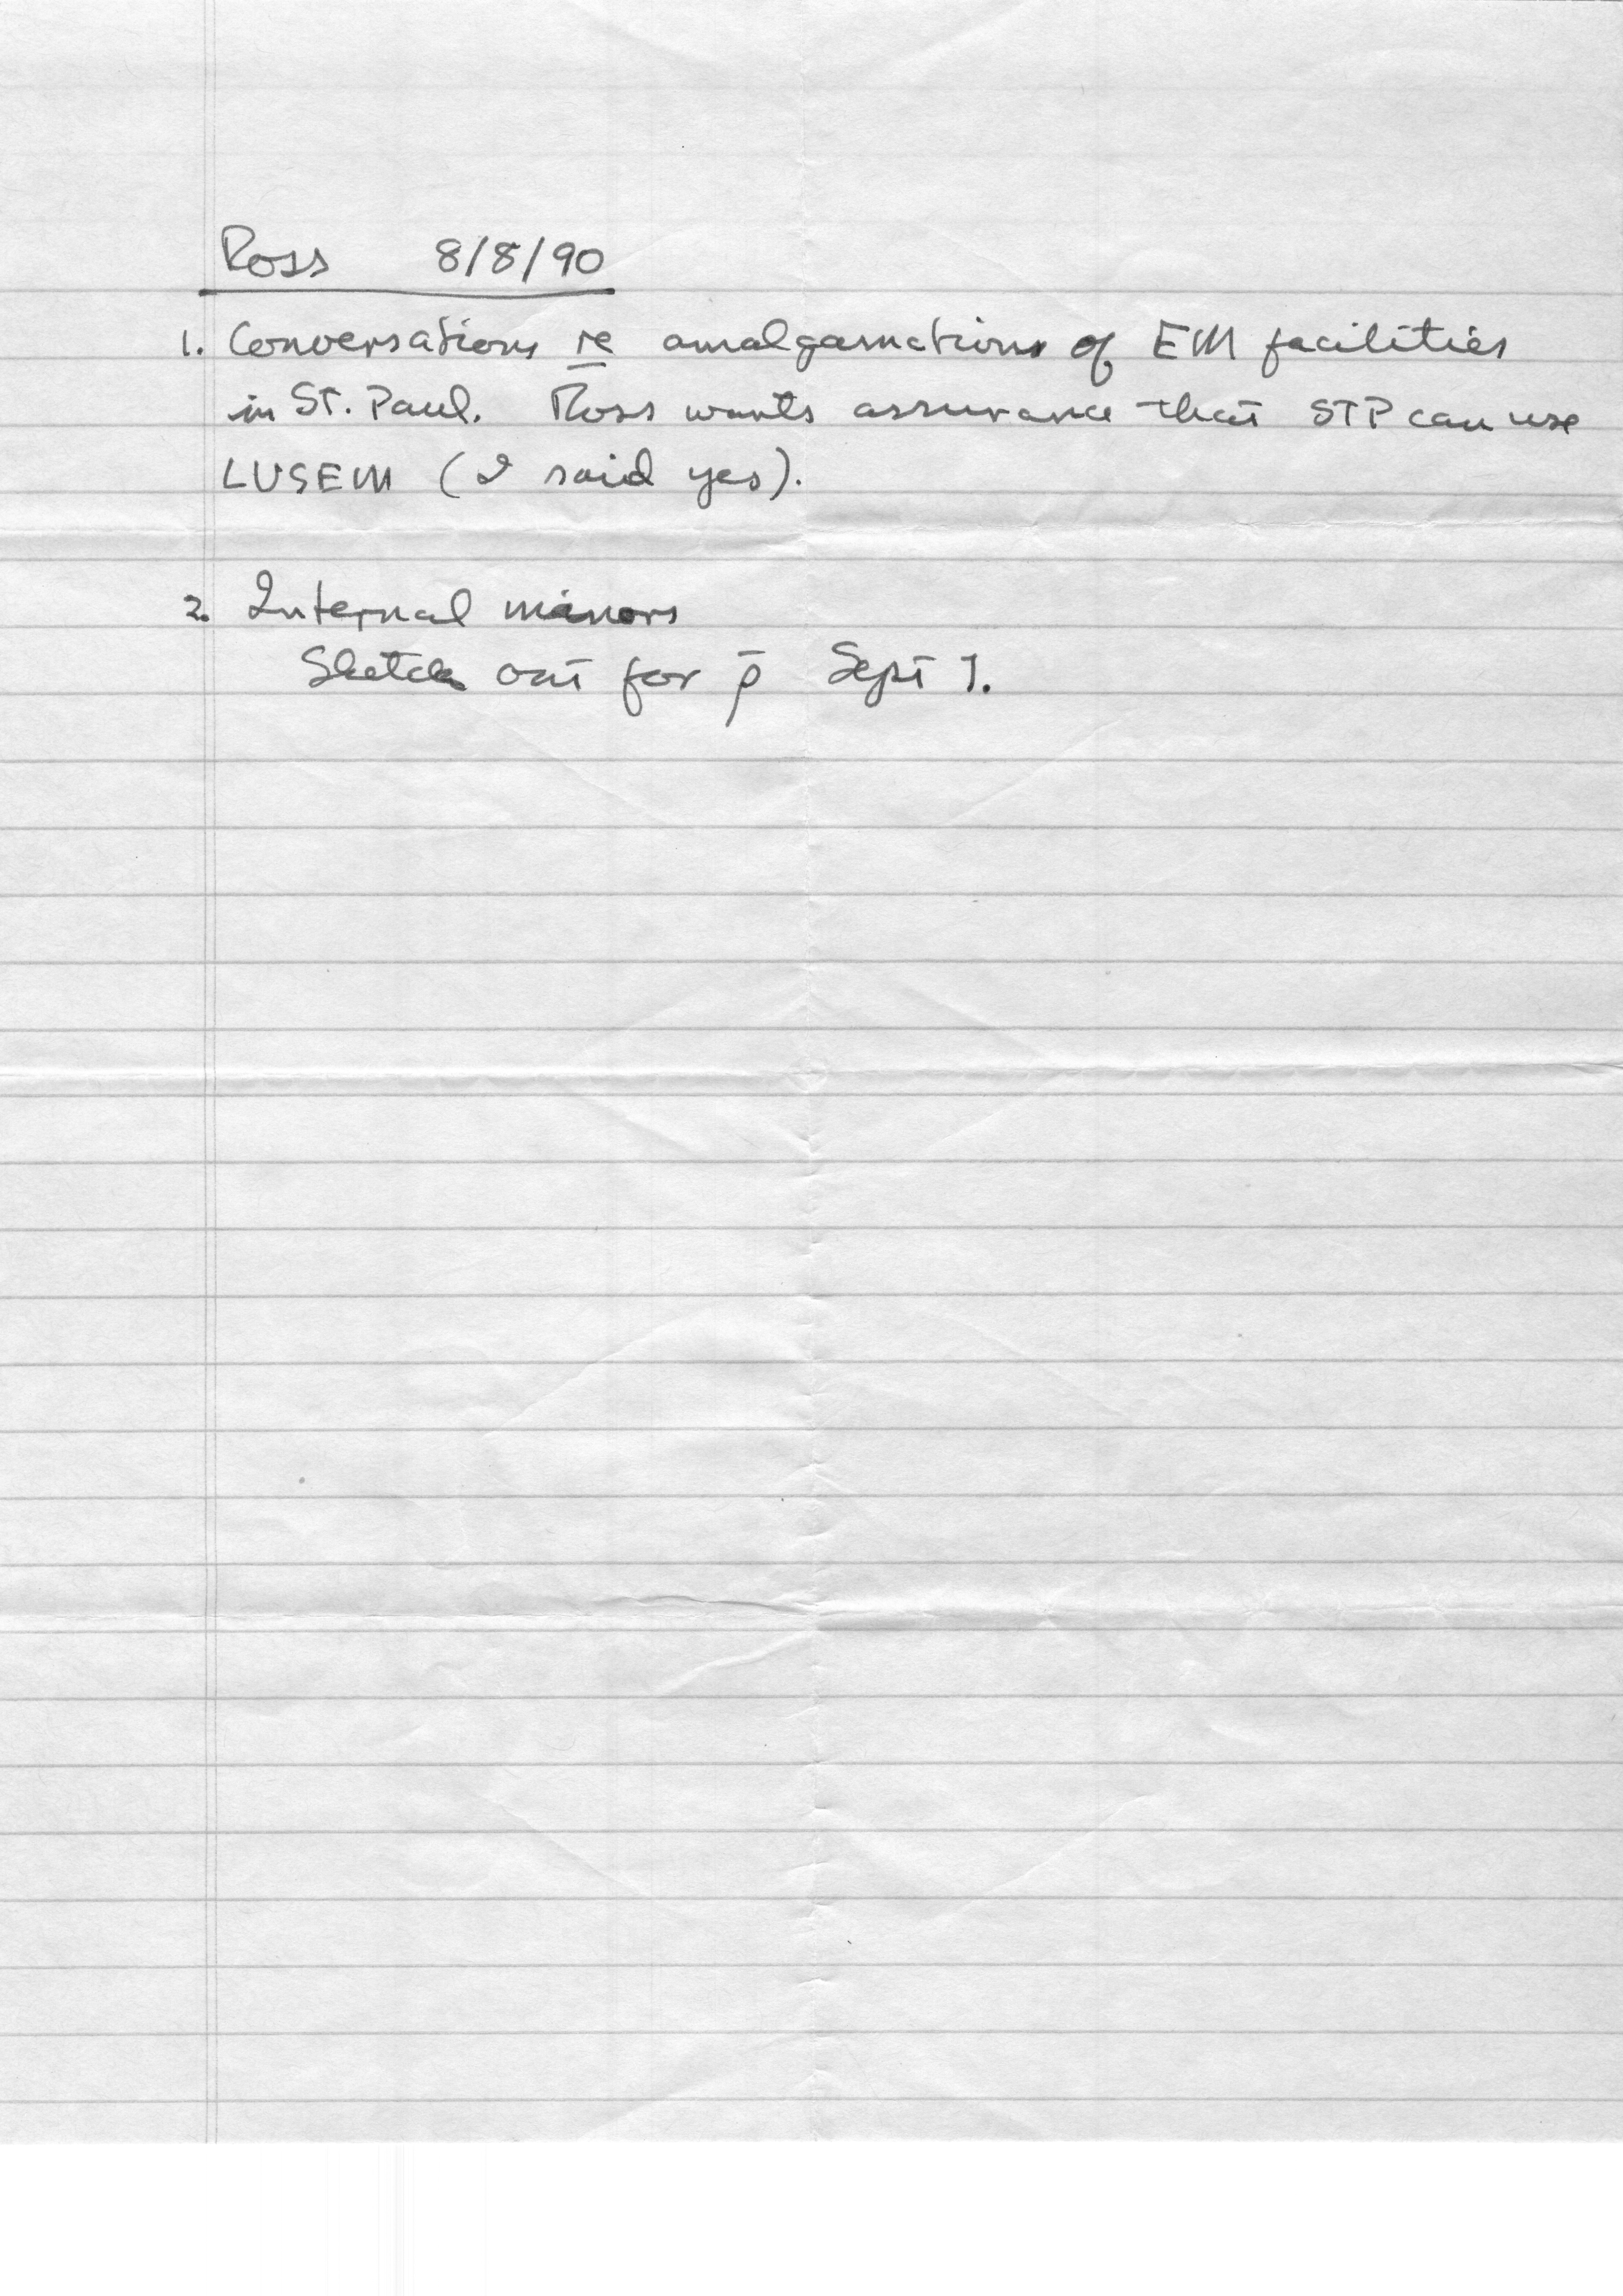 Ross 8/8/90
1. Conversations re amalgamations of EM facilities
in St. Paul. Ross wants assurance that STP can use
LUSEM (I said yes).
2. Internal minors
Sketch out for p̄ Sept 1.